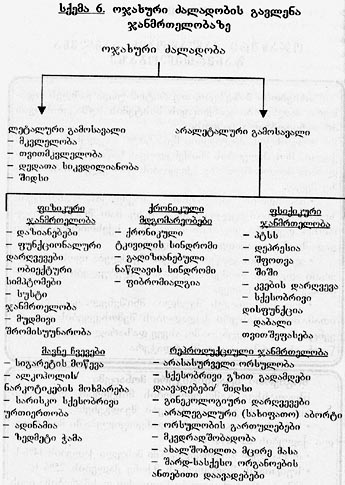 სქემა 6. ოჯახური ძალადობის გავლენა
ჯანმრთელობაზე
ოჯახური ძალადობა
ლეტალური გამოსავალი
– მკვლელობა
– თვითმკვლელობა
– დედათა სიკვდილიანობა
– შიდსი
არალეტალური გამოსავალი
ფიზიკური
ჯანმრთელობა
– დაზიანებები
– ფუნქციონალური
დარღვევები
– ობიექტური
სიმპტომები
– სუსტი
ჯანმრთელობა
– მუდმივი
შრომისუუნარობა
ქრონიკული
მდგომარეობები
– ქრონიკული
ტკივილის სინდრომი
– გაღიზიანებული
ნაწლავის სინდრომი
– ფიბრომიალგია
ფსიქიკური
ჯანმრთელობა
– პტსს
– დეპრესია
– შფოთვა
– შიში
– კვების დარღვევა
– სქესობრივი
დისფუნქცია
– დაბალი
თვითშეფასება
მავნე ჩვევები
– სიგარეტის მოწევა
– ალკოჰოლის/
ნარკოტიკების მოხმარება
– სარისკო სქესობრივი
ურთიერთობა
– ადინამია
– ზედმეტი ჭამა
რეპროდუქციული ჯანმრთელობა
– არასასურველი ორსულობა
– სქესობრივი გზით გადამდები
დაავადებები/ შიდსი
– გინეკოლოგიური დარღვევები
– არალეგალური (სახიფათო) აბორტი
– ორსულობის გართულებები
– მკვდრადშობადობა
– ახალშობილთა მცირე მასა
– შარდ-სასქესო ორგანოების
ანთებითი დაავადებები